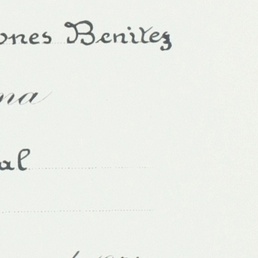 ones Benitez
na
al